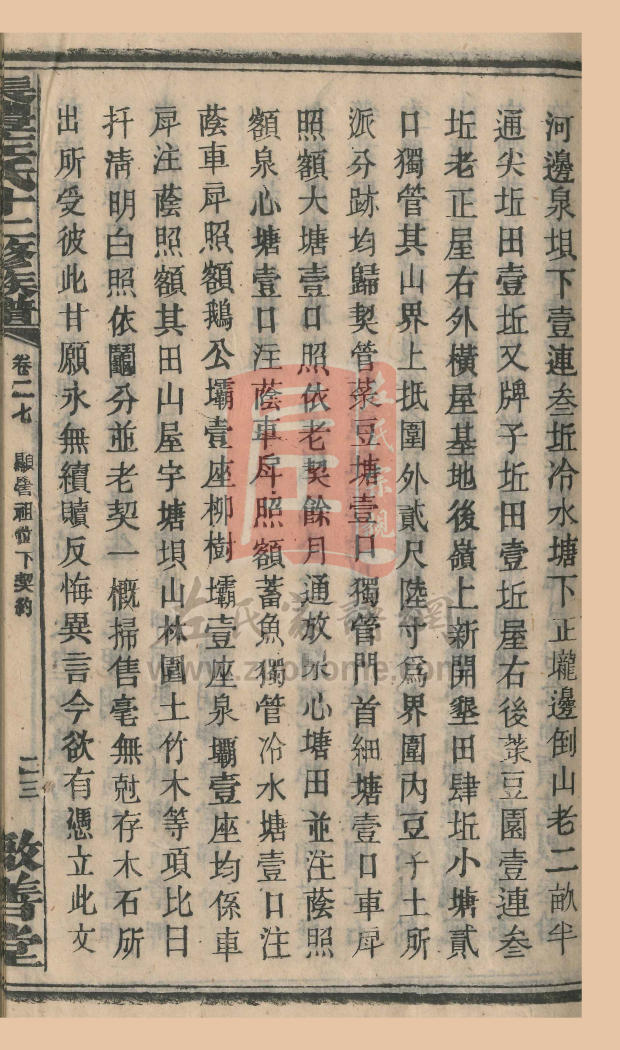 河邊泉垻下壹連叁坵冷水塘下正壠邊倒山老二畝半
通尖坵田壹坵又牌子坵田壹坵屋右後菉豆園壹連叁
坵老正屋右外橫屋基地後嶺上新開墾田肆坵小塘貳
口獨管其山界上抵圍外貳尺陸寸爲界圍內豆子土所
派分跡均歸契管菉豆塘壹口獨管門首細塘壹口車戽
照額大塘壹口照依老契餘月通放水心塘田並注蔭照
額泉心塘壹口注蔭車戽照額蓄魚獨管冷水塘壹口注
蔭車戽照額鵝公壩壹座柳樹壩壹座泉壩壹座均係車
戽注蔭照額其田山屋宇塘垻山林園土竹木等項比日
扦清明白照依鬮分並老契一概掃售毫無尅存木石所
出所受彼此甘願永無續贖反悔異言今欲有憑立此文
左氏十二修族譜
卷二七
祖位下契約
二三
敦善堂
左氏宗親
左氏家譜網
www.zuohome.com